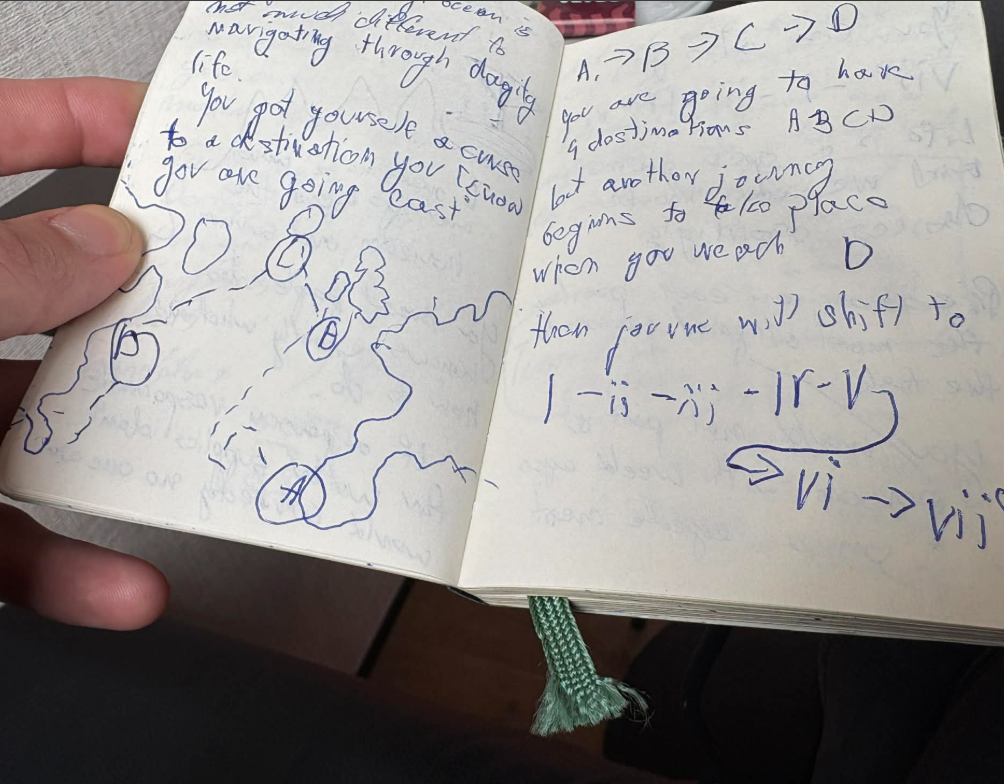 ocean is
not much different to
navigating through
life.
You got yourself a
to a destination you know
you are going east
C
B
D
A
A. → B → C → D
you are going to have
4 destinations A B C D
but another journey
begins to place
when you D
then will shift to
I - ii - iii - IV - V
→ Vi → Vii